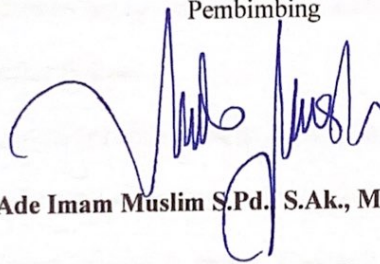 Pembimbing
Ade Imam Muslim S.Pd., S.Ak., M